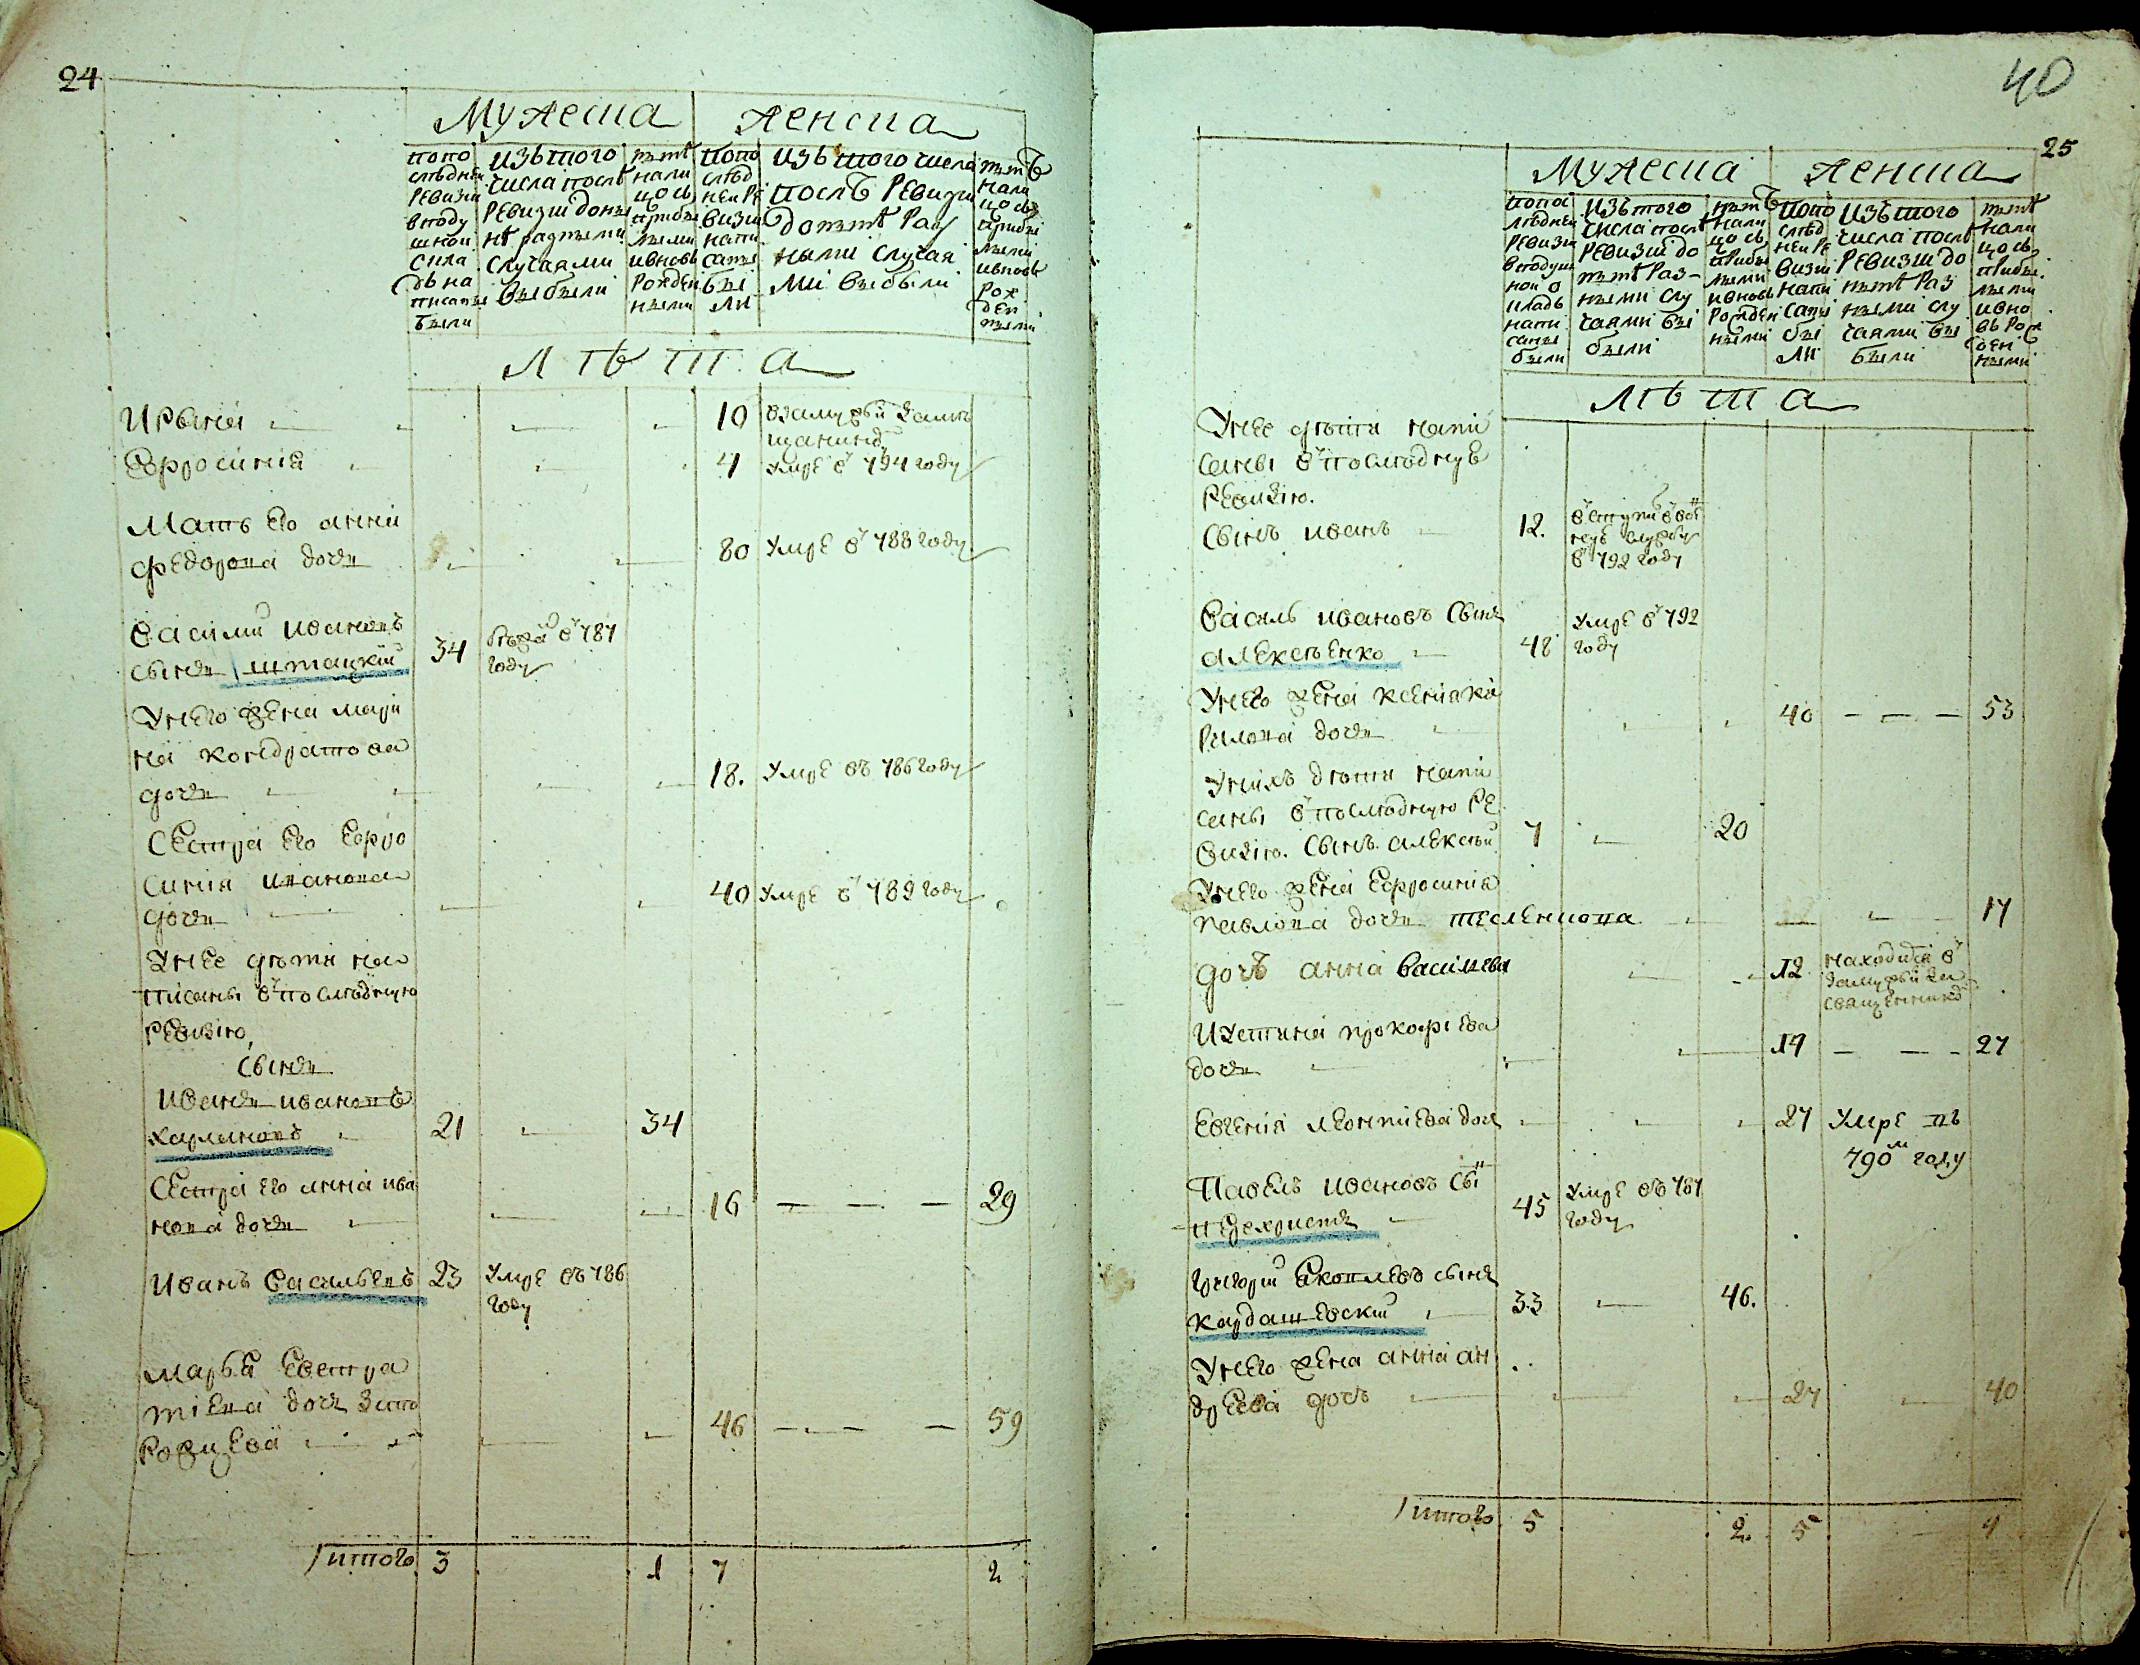 24
Мужеска
Женска
попо
следней
ревизи
в поду
шной
скла
дъ на
писаны
были
изъ того
числа после
ревизии доны
не разными
случаями
выбыли
нали
цо съ
прибы
лыми
ивновь
рожден
ными
попо
след
ней ре
визи
напи
саны
бы
ли
изъ того числа
послѣ ревизи
до
разными случая
ми выбыли
нали
цо съ
прибы
лыми
ивновь
рож
ден
ными
лѣта
Ирына 10 взамужи замѣ
щанинo
Ефросиния 4 умре в 794 году
Мать его анна
федорова дочь 80 умре в 788 году
Василий ивановъ
сынъ штацкий 34 787
году
У него жена мари
на кондратова
дочь 18. умре въ 786 году
Сестра его Ефро
синия иванова
дочь 40 умре в 789 году
У нее дѣти на
писаны в последнюю
ревизию,
сынъ
Иванъ ивановъ
21 34
Сестра его анна ива
нова дочь 16 — — — 29
Иванъ Васильевъ 23 умре въ 786
году
Марья Евстра
тиева дочь
46 — — — 59
итого 3 1 7 2
40
25
Мужеска
Женска
попос
ледней
ревизи
в подуш
ной о
кладъ
напи
саны
были
изъ того
числа после
ревизии до
раз
ными слу
чаями вы
были
нали
цо съ
прибы
лыми
ивновь
рожден
ными
попо
след
ней ре
визи
напи
саны
бы
ли
изъ того
числа после
ревизии до
раз
ными слу
чаями вы
были
нали
цо съ
прибы
лыми
ивно
вь рож
ден
ными
лѣта
У нее дѣти напи
саны в последнуе
ревизию.
Сынъ иванъ 12. в ступи в вои
нску службу
в 792 году
Василь ивановъ сынъ
алексеенко 48 умре в 792
году
У него жена ксения ки
рилова дочь 40 — — — 53
У нихъ дети напи
саны в последную ре
визию. Сынъ алексѣй 7 20
У него жена Ефросиния
павлова дочь тесленкова 17
дочь анна Васильева 12 находица в
замужи за
священнико
Устина прокофиева
дочь 19 — — — 27
Евгения леонтиева доч 27 умре въ
790м году
Павелъ ивановъ сын
перехристъ 45 умре въ 787
году
Григорий яковлевъ сынъ
кардашевский 33 46.
У него жена анна ан
дреева дочь 27 40
итого 5 2. 5 4